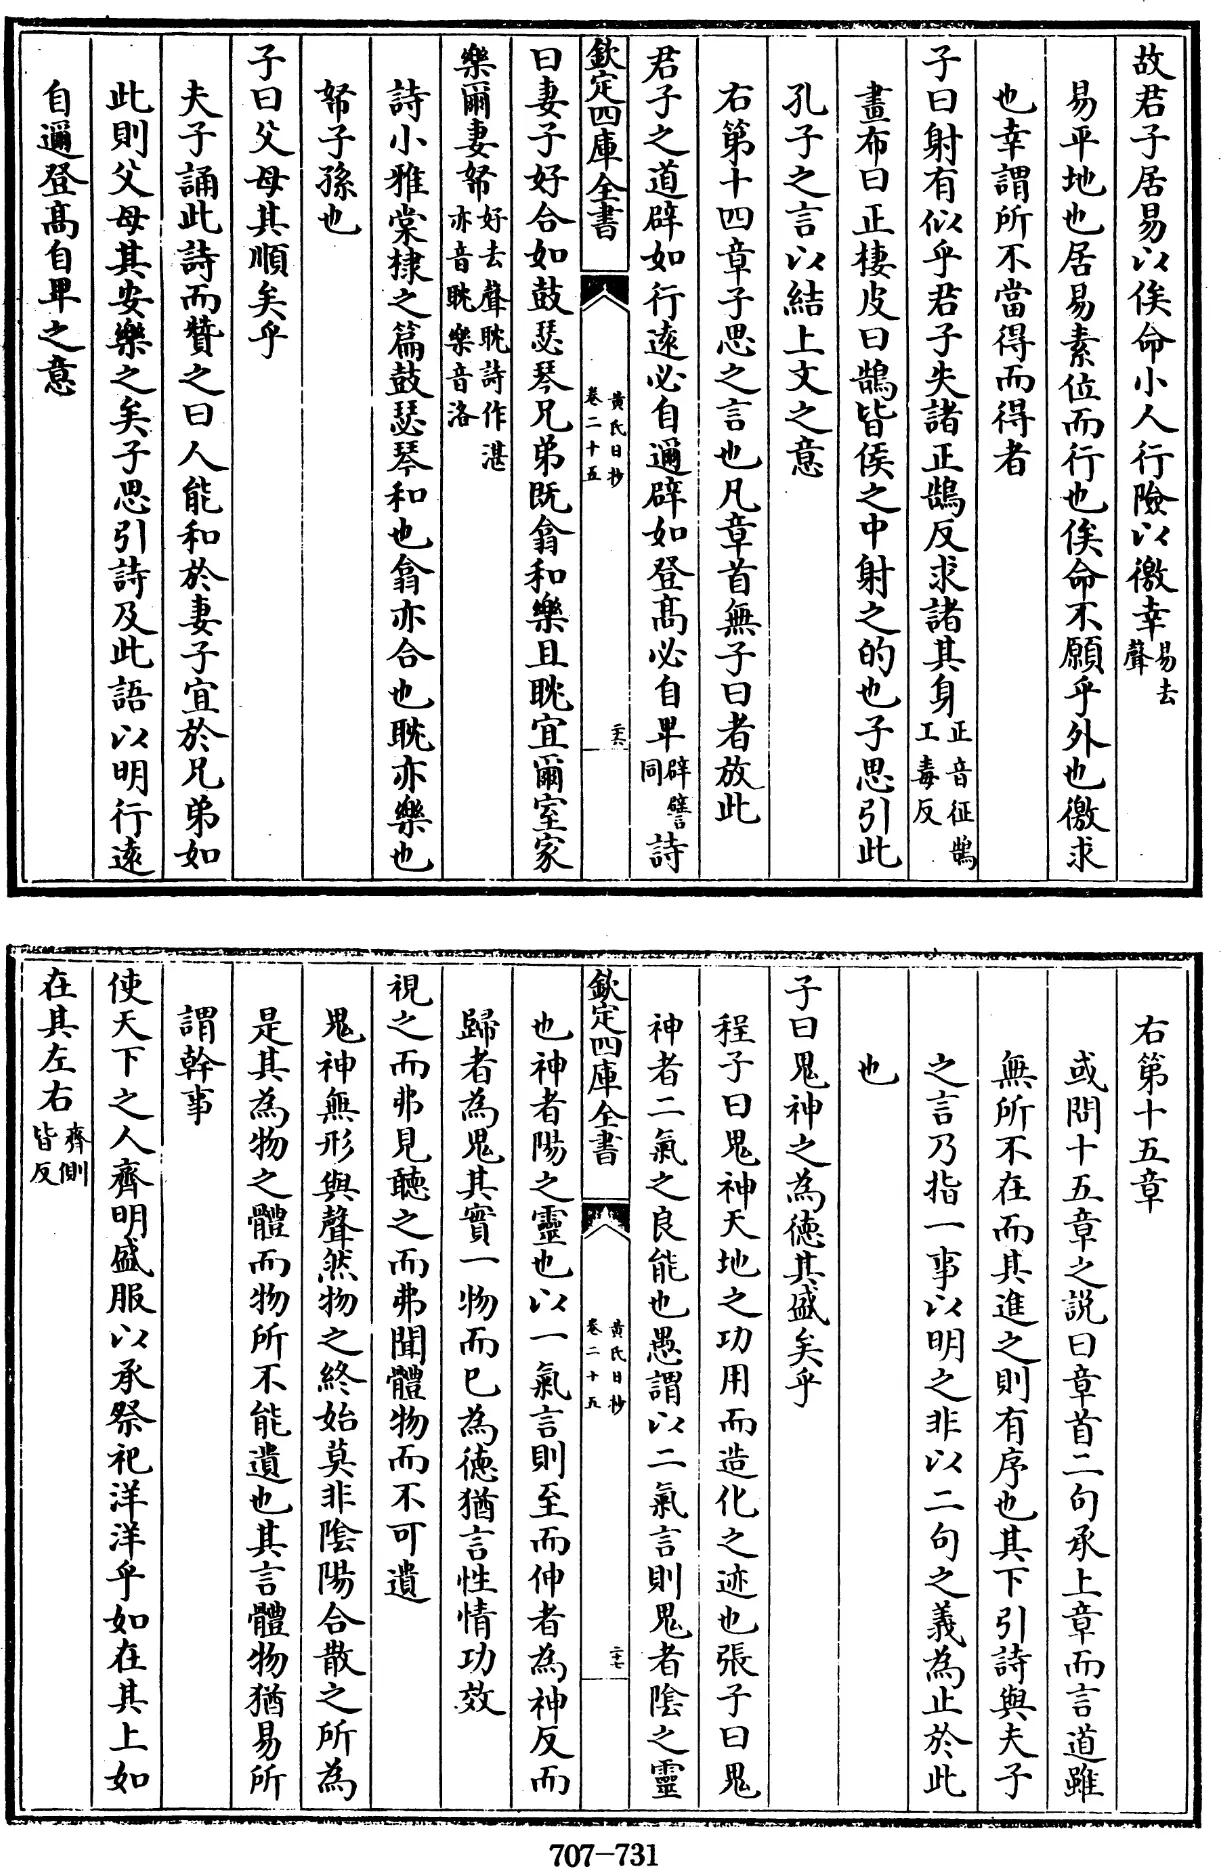 故君子居易以俟命小人行險以徼幸易去聲
易平地也居易素位而行也俟命不願乎外也徼求
也幸謂所不當得而得者
子曰射有似乎君子失諸正鵠反求諸其身正音征鵠工毒反
畫布曰正棲皮曰鵠皆侯之中射之的也子思引此
孔子之言以結上文之意
右第十四章子思之言也凡章首無子曰者放此
君子之道辟如行遠必自邇辟如登高必自卑辟譬同詩
欽定四庫全書
黃氏日抄
卷二十五
二十六
曰妻子好合如鼓瑟琴兄弟既翕和樂且耽宜爾室家
樂爾妻帑好去聲耽詩作湛亦音耽樂音洛
詩小雅棠棣之篇鼓瑟琴和也翕亦合也耽亦樂也
帑子孫也
子曰父母其順矣乎
夫子誦此詩而贊之曰人能和於妻子宜於兄弟如
此則父母其安樂之矣子思引詩及此語以明行遠
自邇登高自卑之意
右第十五章
或問十五章之說曰章首二句承上章而言道雖
無所不在而其進之則有序也其下引詩與夫子
之言乃指一事以明之非以二句之義為止於此
也
子曰鬼神之為德其盛矣乎
程子曰鬼神天地之功用而造化之迹也張子曰鬼
神者二氣之良能也愚謂以二氣言則鬼者陰之靈
欽定四庫全書
黃氏日抄
卷二十五
二十七
也神者陽之靈也以一氣言則至而伸者為神反而
歸者為鬼其實一物而已為德猶言性情功效
視之而弗見聽之而弗聞體物而不可遺
鬼神無形與聲然物之終始莫非陰陽合散之所為
是其為物之體而物所不能遺也其言體物猶易所
謂幹事
使天下之人齊明盛服以承祭祀洋洋乎如在其上如
在其左右齊側皆反
707-731